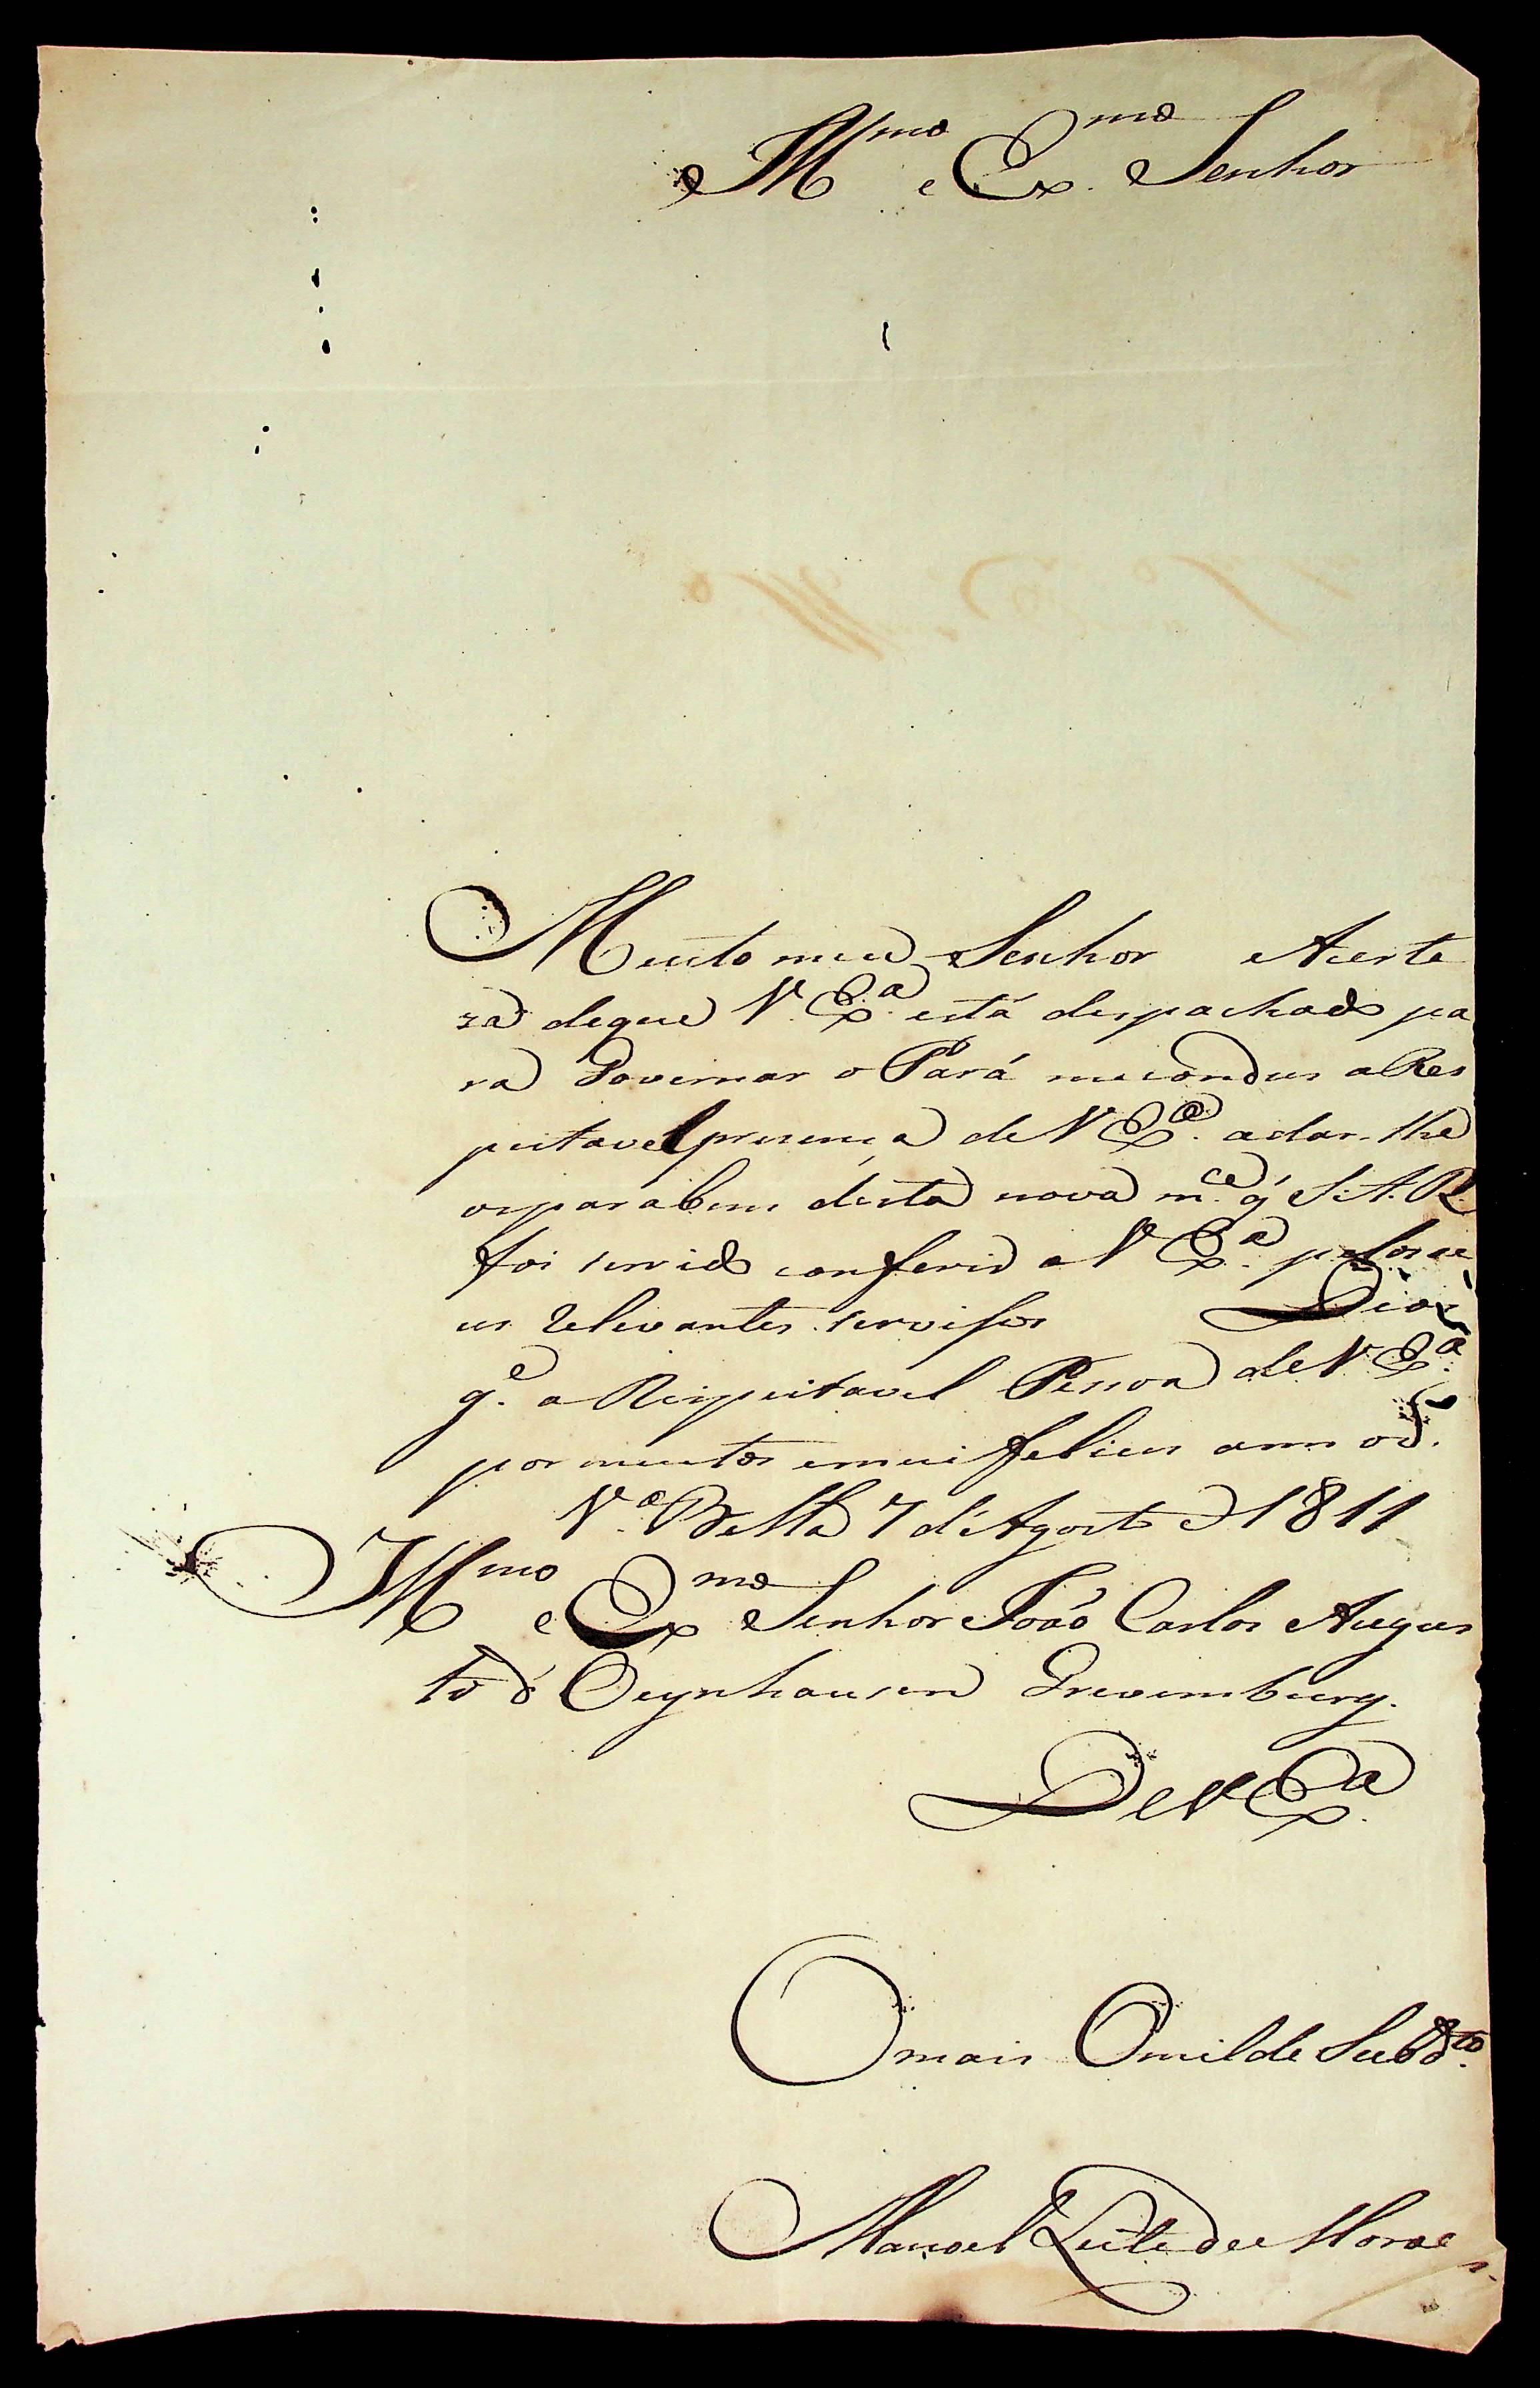 Illmo e Exmo Senhor
Muito meu Senhor Acerte
za deque V. Exa. está despachado pa
ra Governar o Pará me condus a Res
peitavel prezença de V Exa. a dar-lhe
os parabens desta nova mce. q' S.A.R.
foi servido conferir a V Exa. pelos se
us relevantes servissos Deos
ge. a Respeitavel Pessoa de V. Exa.
por muitos e mui felices annos.
Va. Bella 7 d'Agosto d 1811
Illmo e Exmo Senhor João Carlos Augus
to d' Oeynhausen Grevemburg.
De V Exa.
O mais Omilde Subdto.
Manoel Leite de Moraes